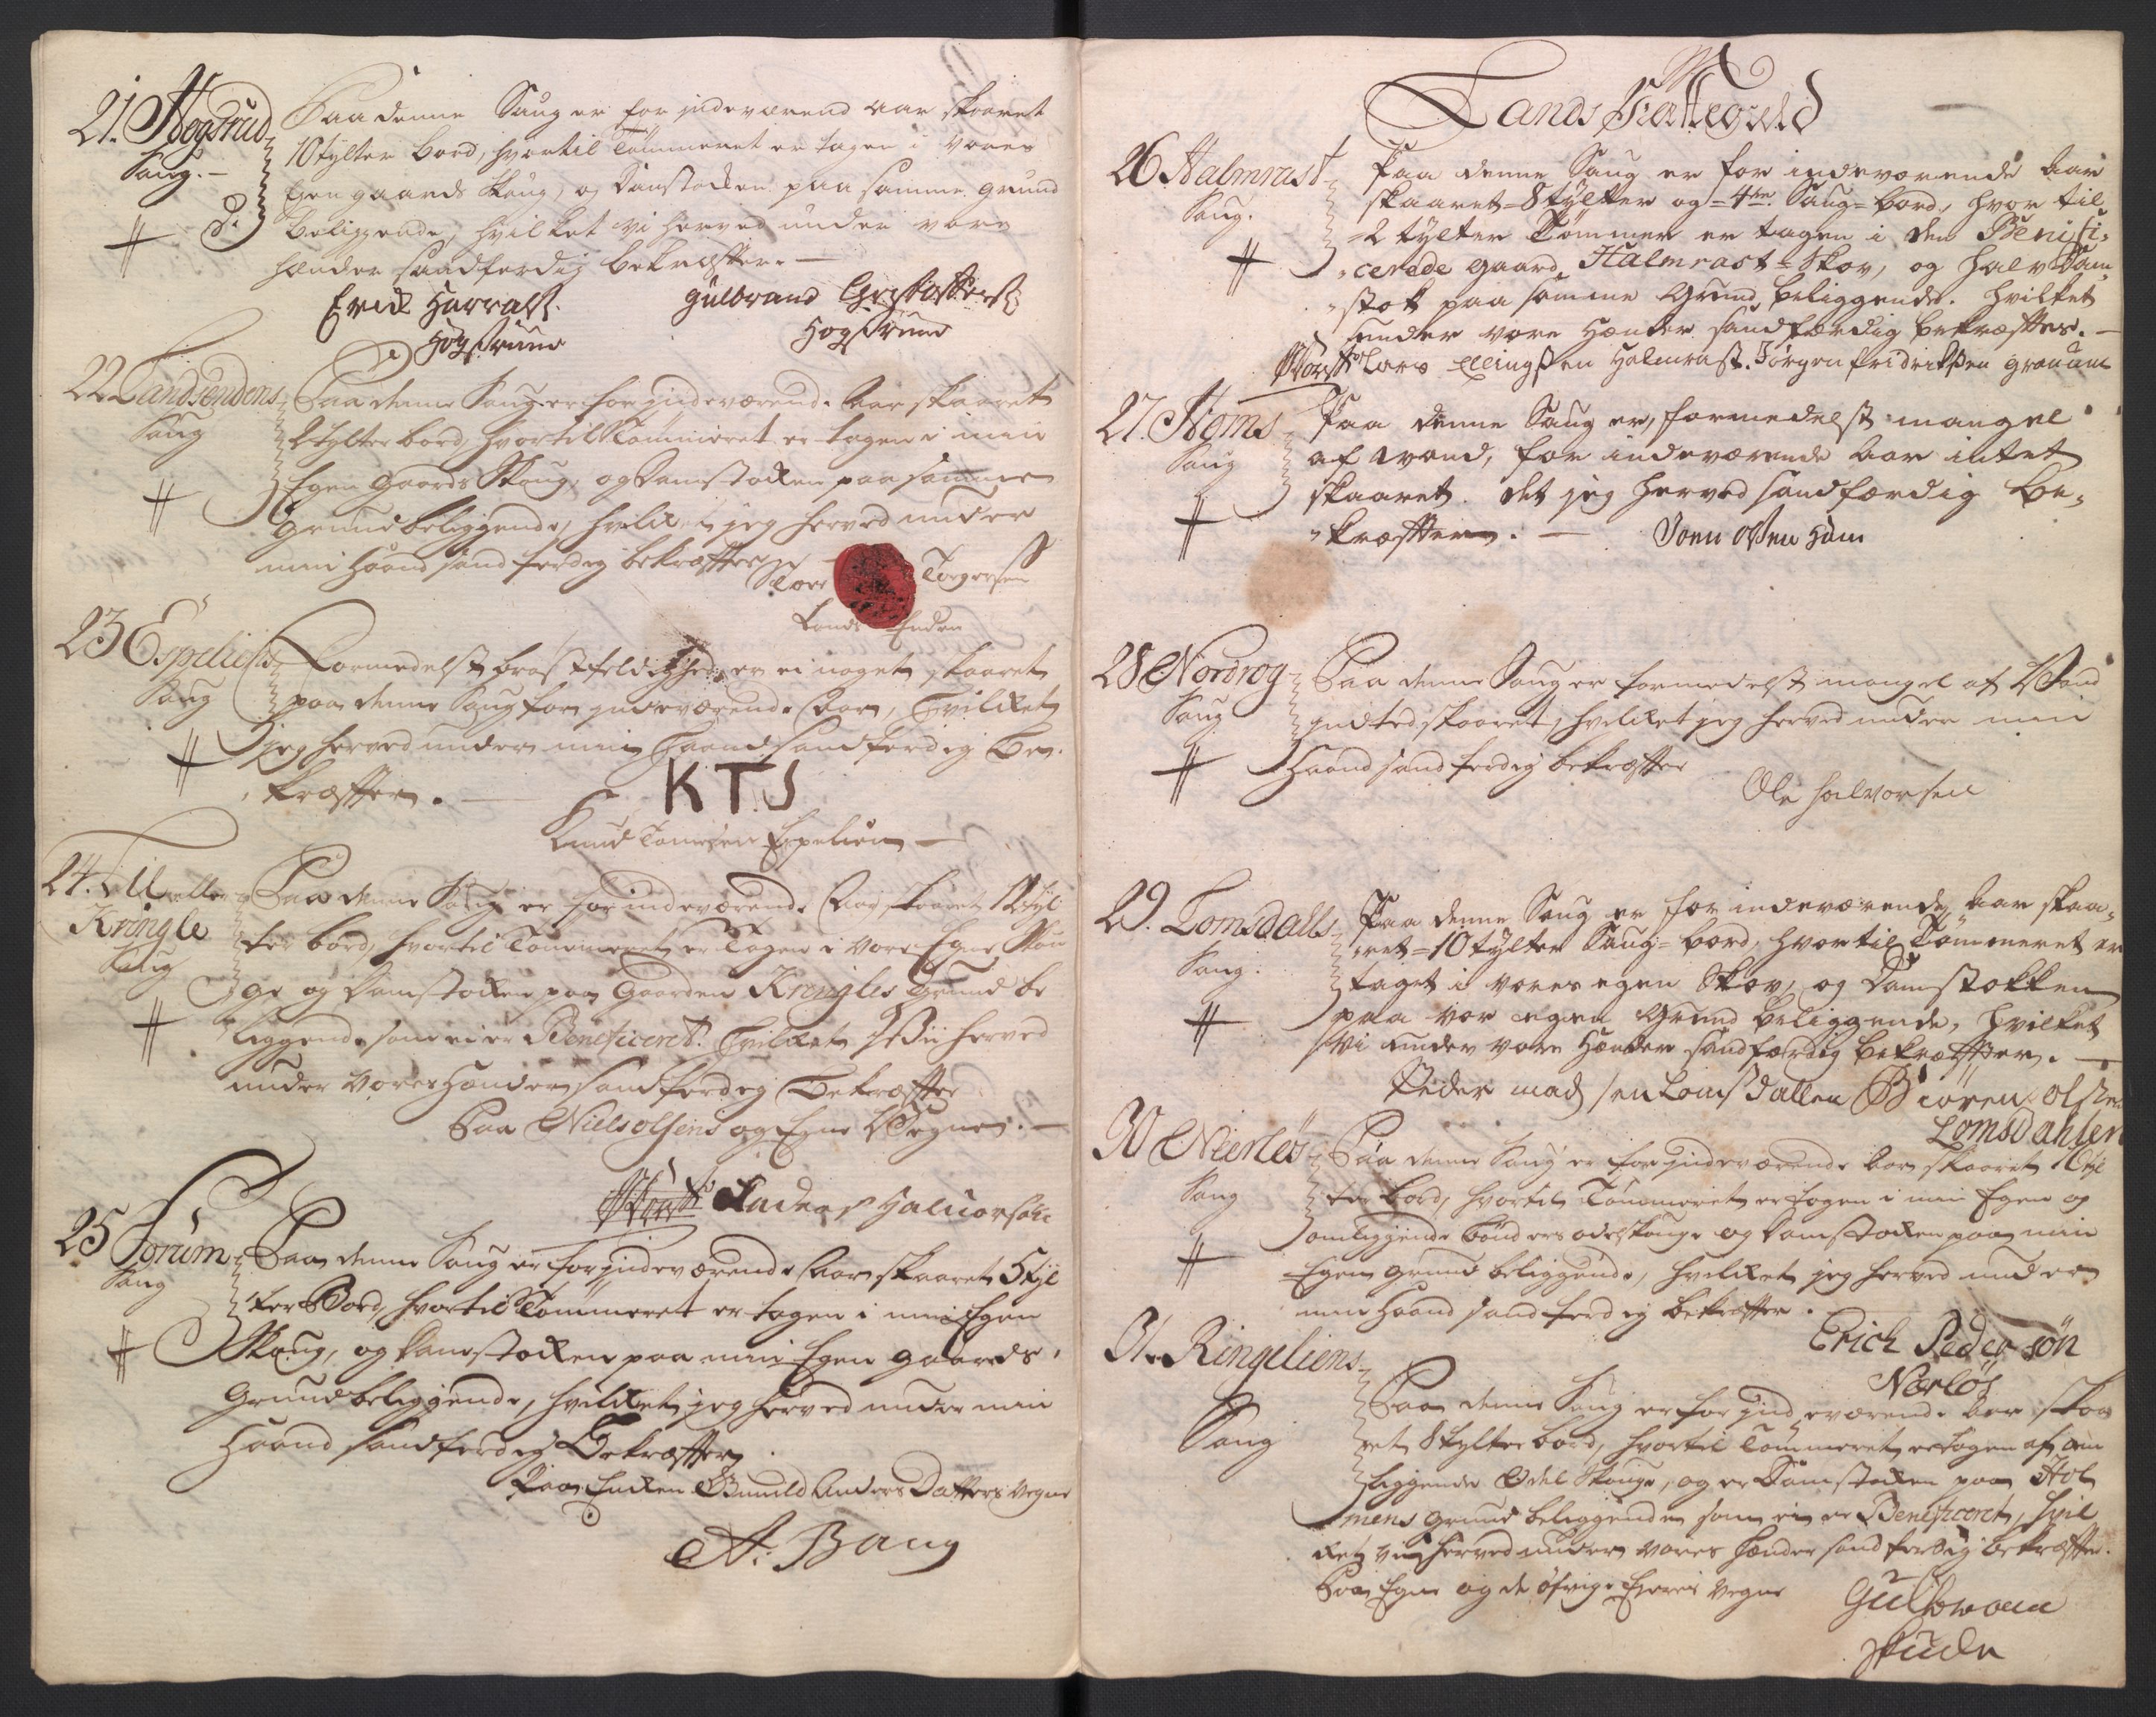 21. Hogsrud
Saug.
Paa denne Saug er for indeværend aar skaaret
10 tylter bord, hvortil Tømmeret er tagen i vores
Egen gaards skoug, og Damstocken paa samme grund
beliggende, hvilket vi herved under vore
hænder sandferdig bekræfter.
Erick Harralds.
Hogsrund
Gulbrand Christoffers.
Hogsrund
22 Landsendens
Saug
Paa denne Saug er for indeværende Aar skaaret
2 tylter bord, hvortil Tømmeret er tagen i min
Egen Gaards Skoug, og Damstocken paa samme
Grund beliggende, hvilket jeg herved under
min Haand sandferdig bekræfter
Torgersen
Lands Enden
23 Espeliens
Saug
Formedelst brøstfeldighed, er ei noget skaaret
paa denne Saug for indeværende Aar, hvilket
jeg herved under min Haand sandferdig be-
kræfter.
KTS
Knud Tomesen Espelien
24. Ull eller
Kringle
Saug
Paa denne Saug er for indeværende Aar skaaret 12 tyl
ter bord, hvortil Tømmeret er Tagen i vore Egne Skou
ge og Damstocken paa Gaarden Kringles Grund be
liggende som ei er Beneficeret. hvilket Vii herved
under vores Hænder sandferdig bekræfter
Paa Niels Olsens og Egne Vegne.
Anders Halvorsen
25 Forum
Saug
Paa denne Saug er for indeværende Aar skaaret 5 tyl
ter Bord, hvortil Tømmeret er tagen i min Egen
Skoug, og Damstocken paa min Egen gaards
Grund beliggende, hvilket jeg herved under min
Haand sandferdig bekræfter
Paa Encken Gunild Anders Datters vegne
A. Bang
Lands Fiatteguld
26 Halmrast
Saug.
Paa denne Saug er for indeværende aar
skaaret 8 tylter og 4 br. Saug-bord, hvor til
2 tylter Tømmer er tagen i den Benifi-
cerede gaard Halmrast-Skov, og halv Dam
stok paa samme Grund beliggende. hvilket
under vore hænder sandfærdig bekræfter.
Lars Ellingsen Halmrast. Jørgen fridriksen granum
27. Homs
Saug
Paa denne Saug er, formedelst mangel
af Vand, for indeværende Aar intet
skaaret. det jeg herved sandfærdig be-
kræfter.
Joen Olsen Hom
28 Nordrog
Saug
Paa denne Saug er formedelst mangel af Vand
indted skaaret, hvilket jeg herved under min
Haand sandferdig bekræfter
Ole Halvorsen
29. Lomsdalls
Saug.
Paa denne Saug er for indeværende Aar skaa-
ret 10 tylter Saug-bord, hvortil Tømmeret er
taget i vores egen Skov, og Damstokken
paa vor egen Grund beliggende, hvilket
vi under vore Hænder sandfærdig bekræfter.
Peder madsen Lomsdallen Biøren Olsen
Lomsdahlen
30 Neerløs
Saug
Paa denne Saug er for indeværende Aar skaaret 10 tyl
ter bord, hvortil Tømmeret er tagen i min Egen og
omliggende bønders odelskouge og Damstocken paa min
Egen grund beliggende, hvilket jeg herved under
min Haand sandferdig bekræfter.
Erich Pedersøn
Nærløs
31. Ringeliens
Saug
Paa denne Saug er for indeværende Aar skaa
ret 8 tylter bord, hvortil Tømmeret er tagen af om
liggende Odel Skouge, og er Damstocken paa Hol
mens grund beliggende som ei er Beneficeret, hvil
ket vii herved under vores hænder sandferdig bekræfter.
Paa Egne og de øfrige Eyeres vegne
Gulbran
Skude